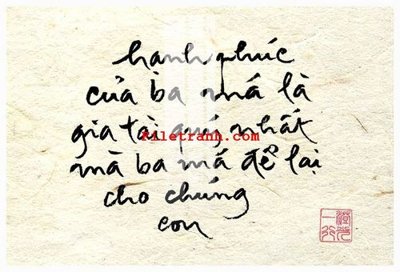 hạnh phúc
của ba má là
gia tài quý nhất
filetranh.com
mà ba má để lại
cho chúng
con